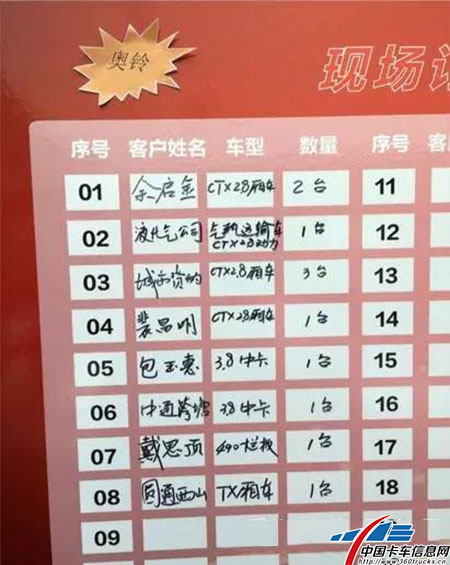 奥铃
现场
序号 客户姓名 车型 数量 序号
01 余启金 CTX2.8厢车 2台 11
02 液化气公司 气瓶运输车 CTX2.8动力 1台 12
03 CTX2.8厢车 3台 13
04 裴昌明 CTX2.8厢车 1台 14
05 包玉惠 3.8中卡 1台 15
06 中通跨塘 3.8中卡 1台 16
07 戴思顶 490栏板 1台 17
08 圆通西山 TX厢车 1台 18
09
中国卡车信息网
http://www.360trucks.cn